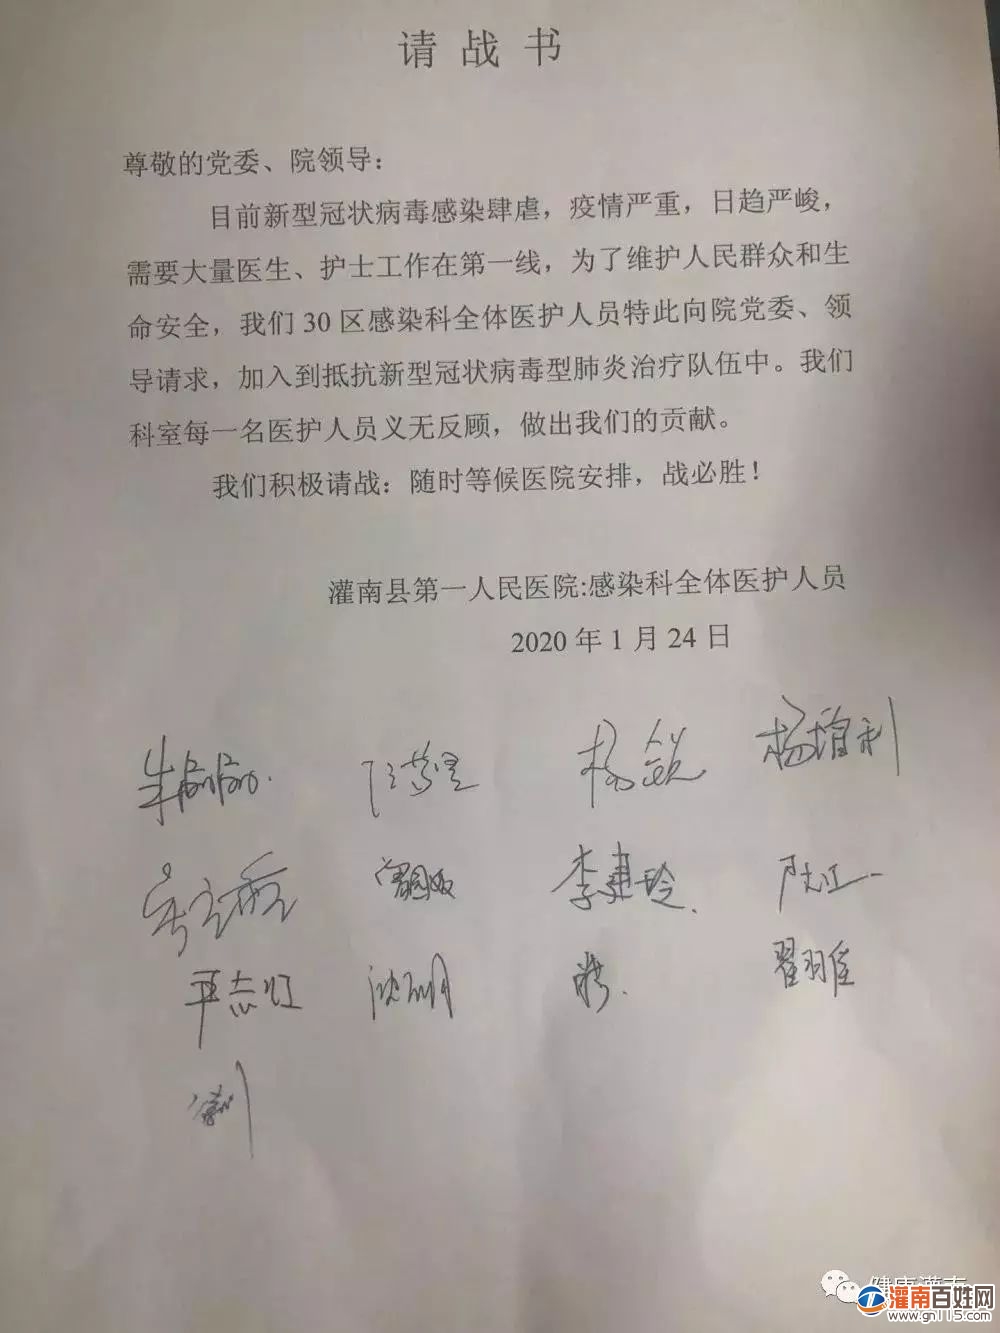 请战书
尊敬的党委、院领导：
目前新型冠状病毒感染肆虐，疫情严重，日趋严峻，
需要大量医生、护士工作在第一线，为了维护人民群众和生
命安全，我们30区感染科全体医护人员特此向院党委、领
导请求，加入到抵抗新型冠状病毒型肺炎治疗队伍中。我们
科室每一名医护人员义无反顾，做出我们的贡献。
我们积极请战：随时等候医院安排，战必胜！
灌南县第一人民医院:感染科全体医护人员
2020年1月24日
杨锐 杨增利
李建玲
严志红 沈明 翟雅
健康灌南
灌南百姓网
www.gn115.com